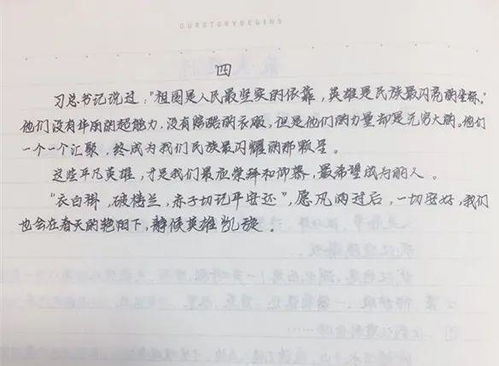 OURSTORYBEGINS
四
习总书记说过:“祖国是人民最坚实的依靠,英雄是民族最闪亮的坐标。”
他们没有华丽的超能力,没有酷酷的衣服,但是他们的力量却是无穷大的。他们
一个一个汇聚,终成为我们民族最闪耀的那颗星。
这些平凡英雄,才是我们最应崇拜和仰慕,最希望成为的人。
“衣白褂,破楼兰,赤子切记平安还”,愿风雨过后,一切安好,我们
也会在春天的艳阳下,静候英雄凯旋。